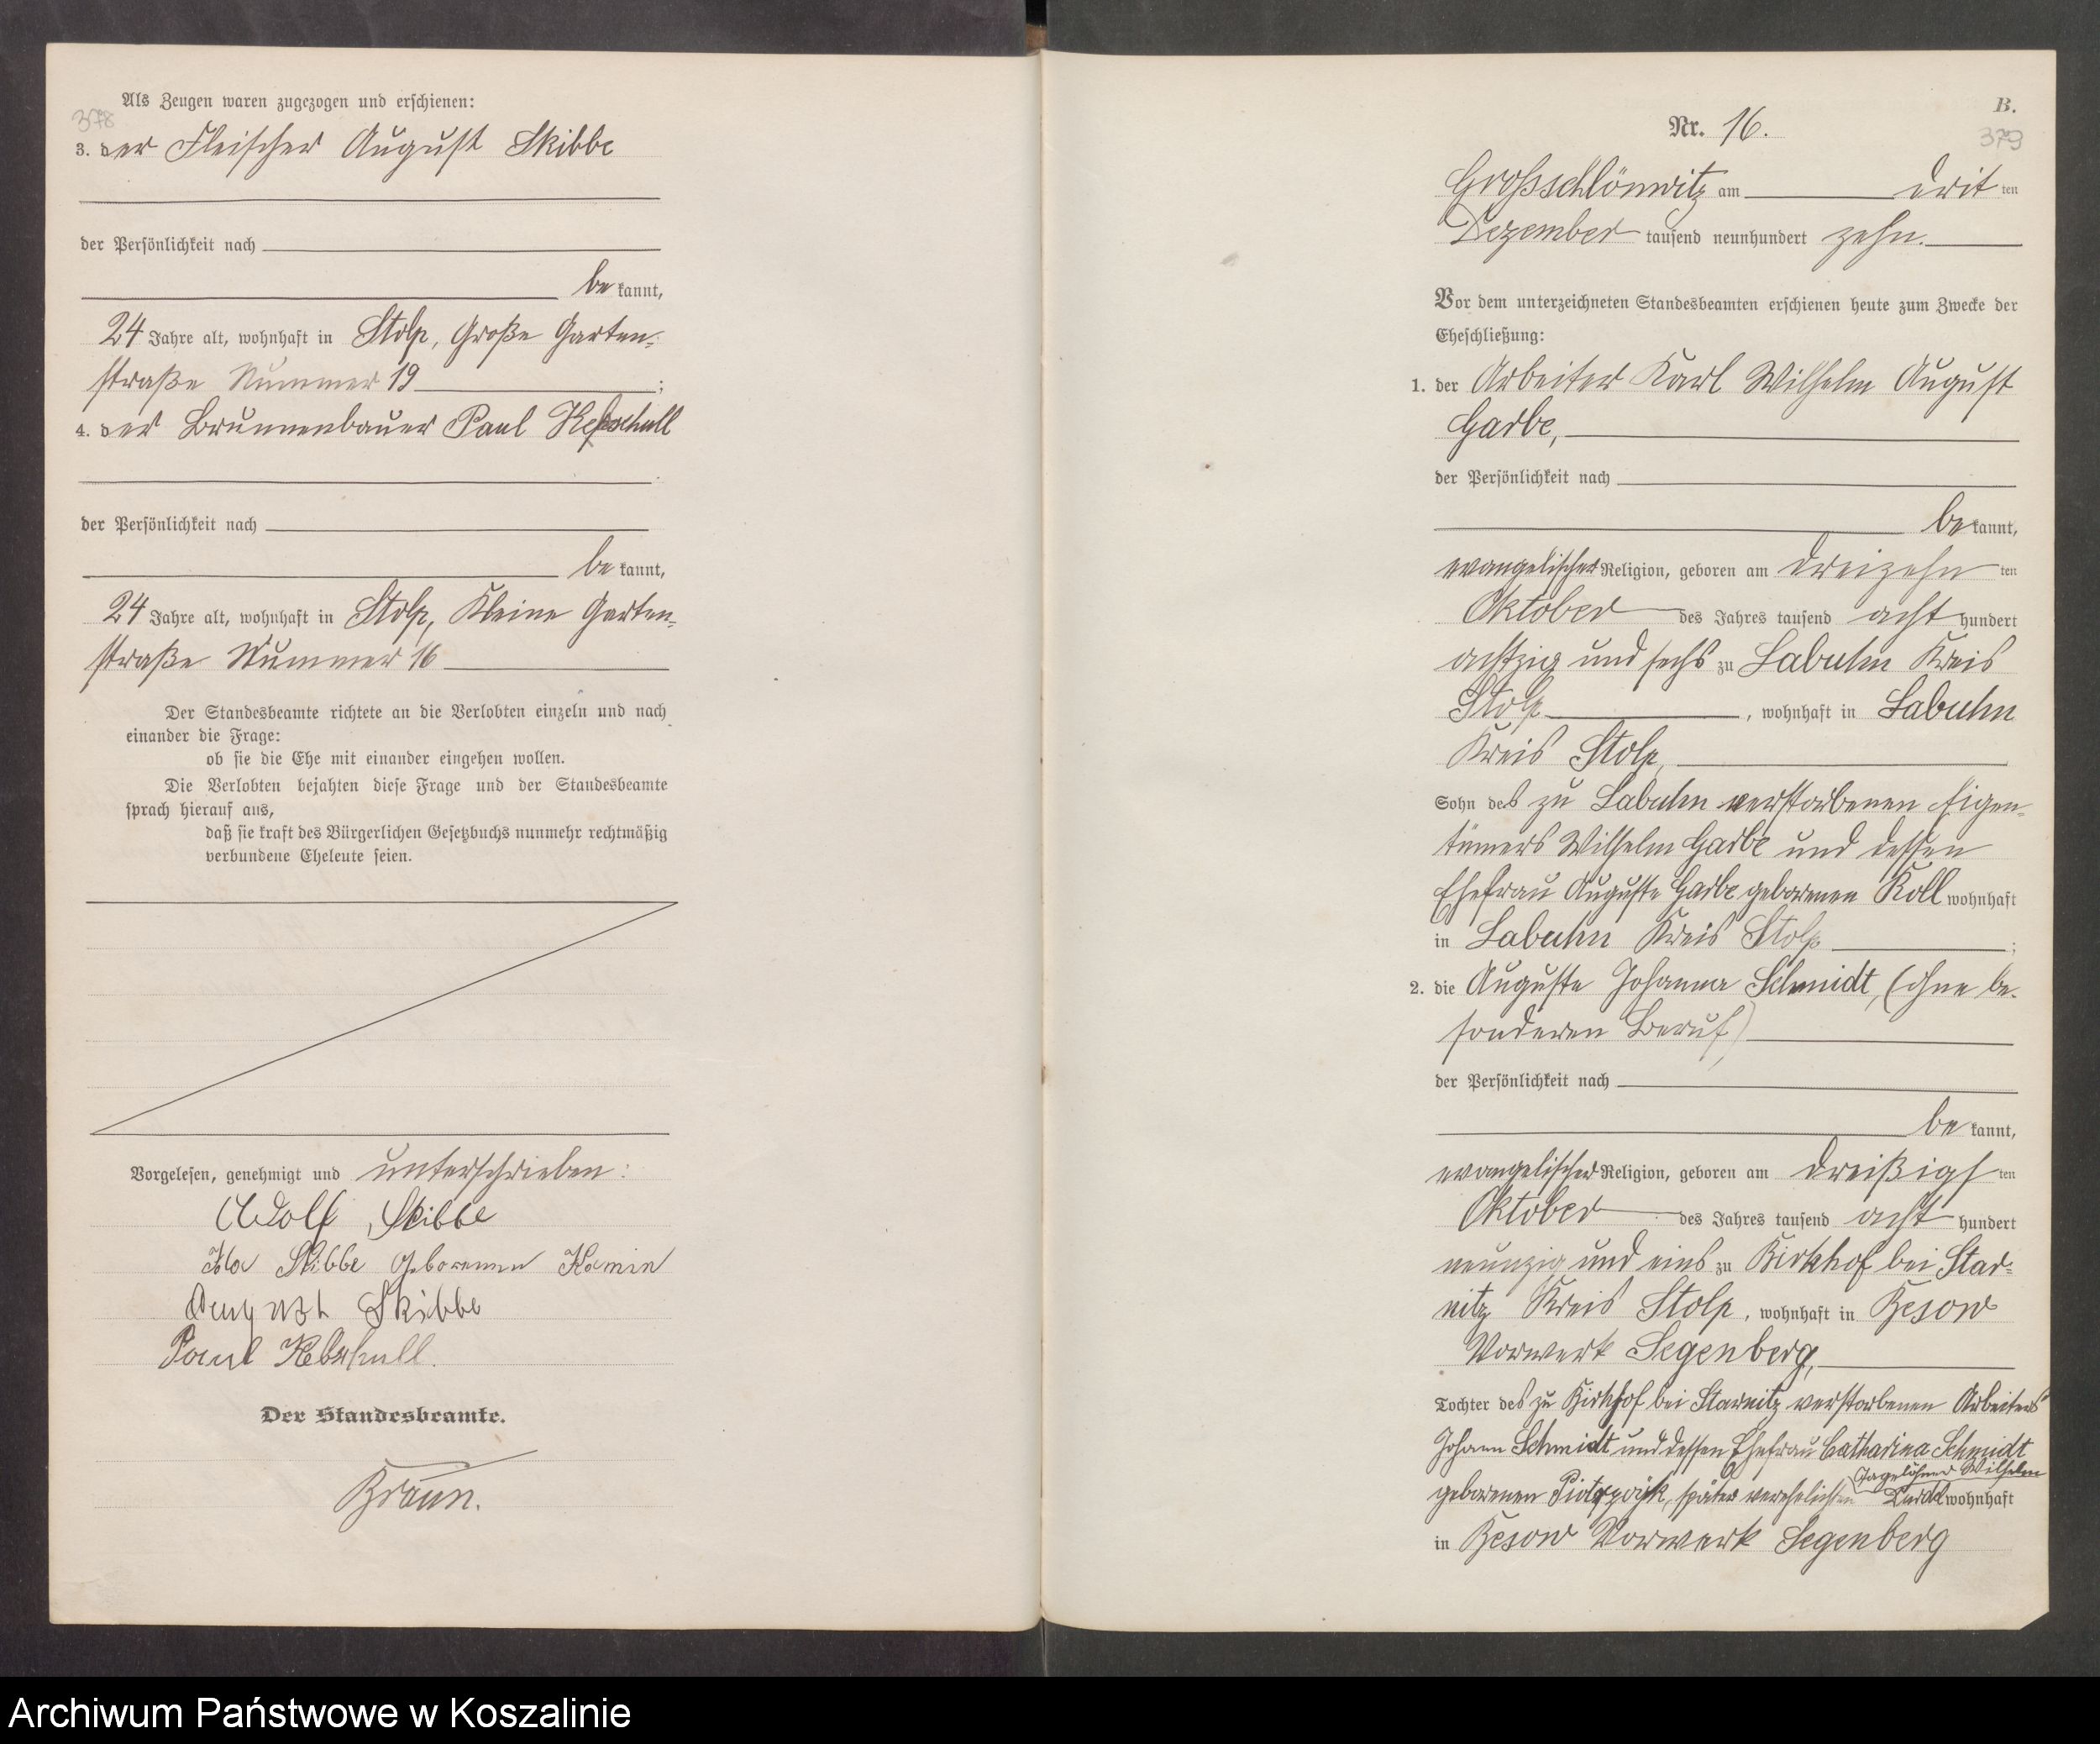 378
Als Zeugen waren zugezogen und erschienen:
3. der Fleischer August Skibbe
der Persönlichkeit nach
be kannt,
24 Jahre alt, wohnhaft in Stolp, Große Garten-
straße Nummer 19 ;
4. der Brunnenbauer Paul Kebschull
der Persönlichkeit nach
be kannt,
24 Jahre alt, wohnhaft in Stolp, Kleine Garten-
straße Nummer 16
Der Standesbeamte richtete an die Verlobten einzeln und nach
einander die Frage:
ob sie die Ehe mit einander eingehen wollen.
Die Verlobten bejahten diese Frage und der Standesbeamte
sprach hierauf aus,
daß sie kraft des Bürgerlichen Gesetzbuchs nunmehr rechtmäßig
verbundene Eheleute seien.
Vorgelesen, genehmigt und unterschrieben:
Adolf Skibbe
Skibbe geborenen Kamin
August Skibbe
Paul Kebschull.
Der Standesbeamte.
Braun.
B.
379
Nr. 16.
Großschlönwitz am drit ten
Dezember tausend neunhundert zehn.
Vor dem unterzeichneten Standesbeamten erschienen heute zum Zwecke der
Eheschließung:
1. der Arbeiter Karl Wilhelm August
Garbe,
der Persönlichkeit nach
be kannt,
evangelischer Religion, geboren am dreizehn ten
Oktober des Jahres tausend acht hundert
achtzig und sechs zu Labuhn Kreis
Stolp , wohnhaft in Labuhn
Kreis Stolp,
Sohn des zu Labuhn verstorbenen Eigen-
tümers Wilhelm Garbe und dessen
Ehefrau Auguste Garbe geborenen Koll wohnhaft
in Labuhn Kreis Stolp ;
2. die Auguste Johanna Schmidt, (ohne be-
sonderen Beruf)
der Persönlichkeit nach
be kannt,
evangelischer Religion, geboren am dreißigs ten
Oktober des Jahres tausend acht hundert
neunzig und eins zu Birkhof bei Star-
nitz Kreis Stolp, wohnhaft in Besow
Vorwerk Segenberg,
Tochter des zu Birkhof bei Starnitz verstorbenen Arbeiters
Johann Schmidt und dessen Ehefrau Catharina Schmidt
Tagelöhner Wilhelm
geborenen später verehelichten wohnhaft
in Besow Vorwerk Segenberg
Archiwum Państwowe w Koszalinie